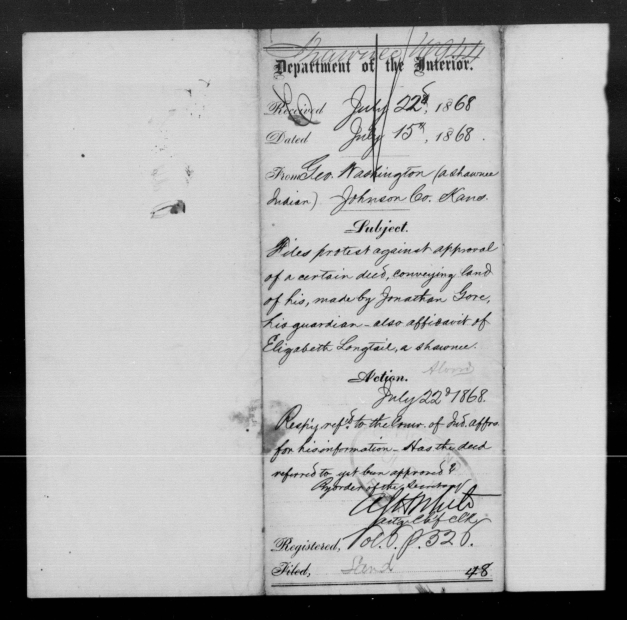 Shawnee
Department of the Interior.
Received July 22d, 1868
Dated July 15th, 1868.
From Geo. Washington (a shawnee
Indian) Johnson Co. Kans.
Subject.
Files protest against approval
of a certain deed, conveying land
of his, made by Jonathan Gore,
his guardian - also affidavit of
Elizabeth Longtail, a shawnee.
Action.
July 22d 1868.
Resp'y ref'd to the Comr. of Ind. Affrs.
for his information - Has the deed
referred to yet been approved?
By order of the Secretary
Actg Chf Clk
Registered, Vol. 6. p. 326.
Filed, 48